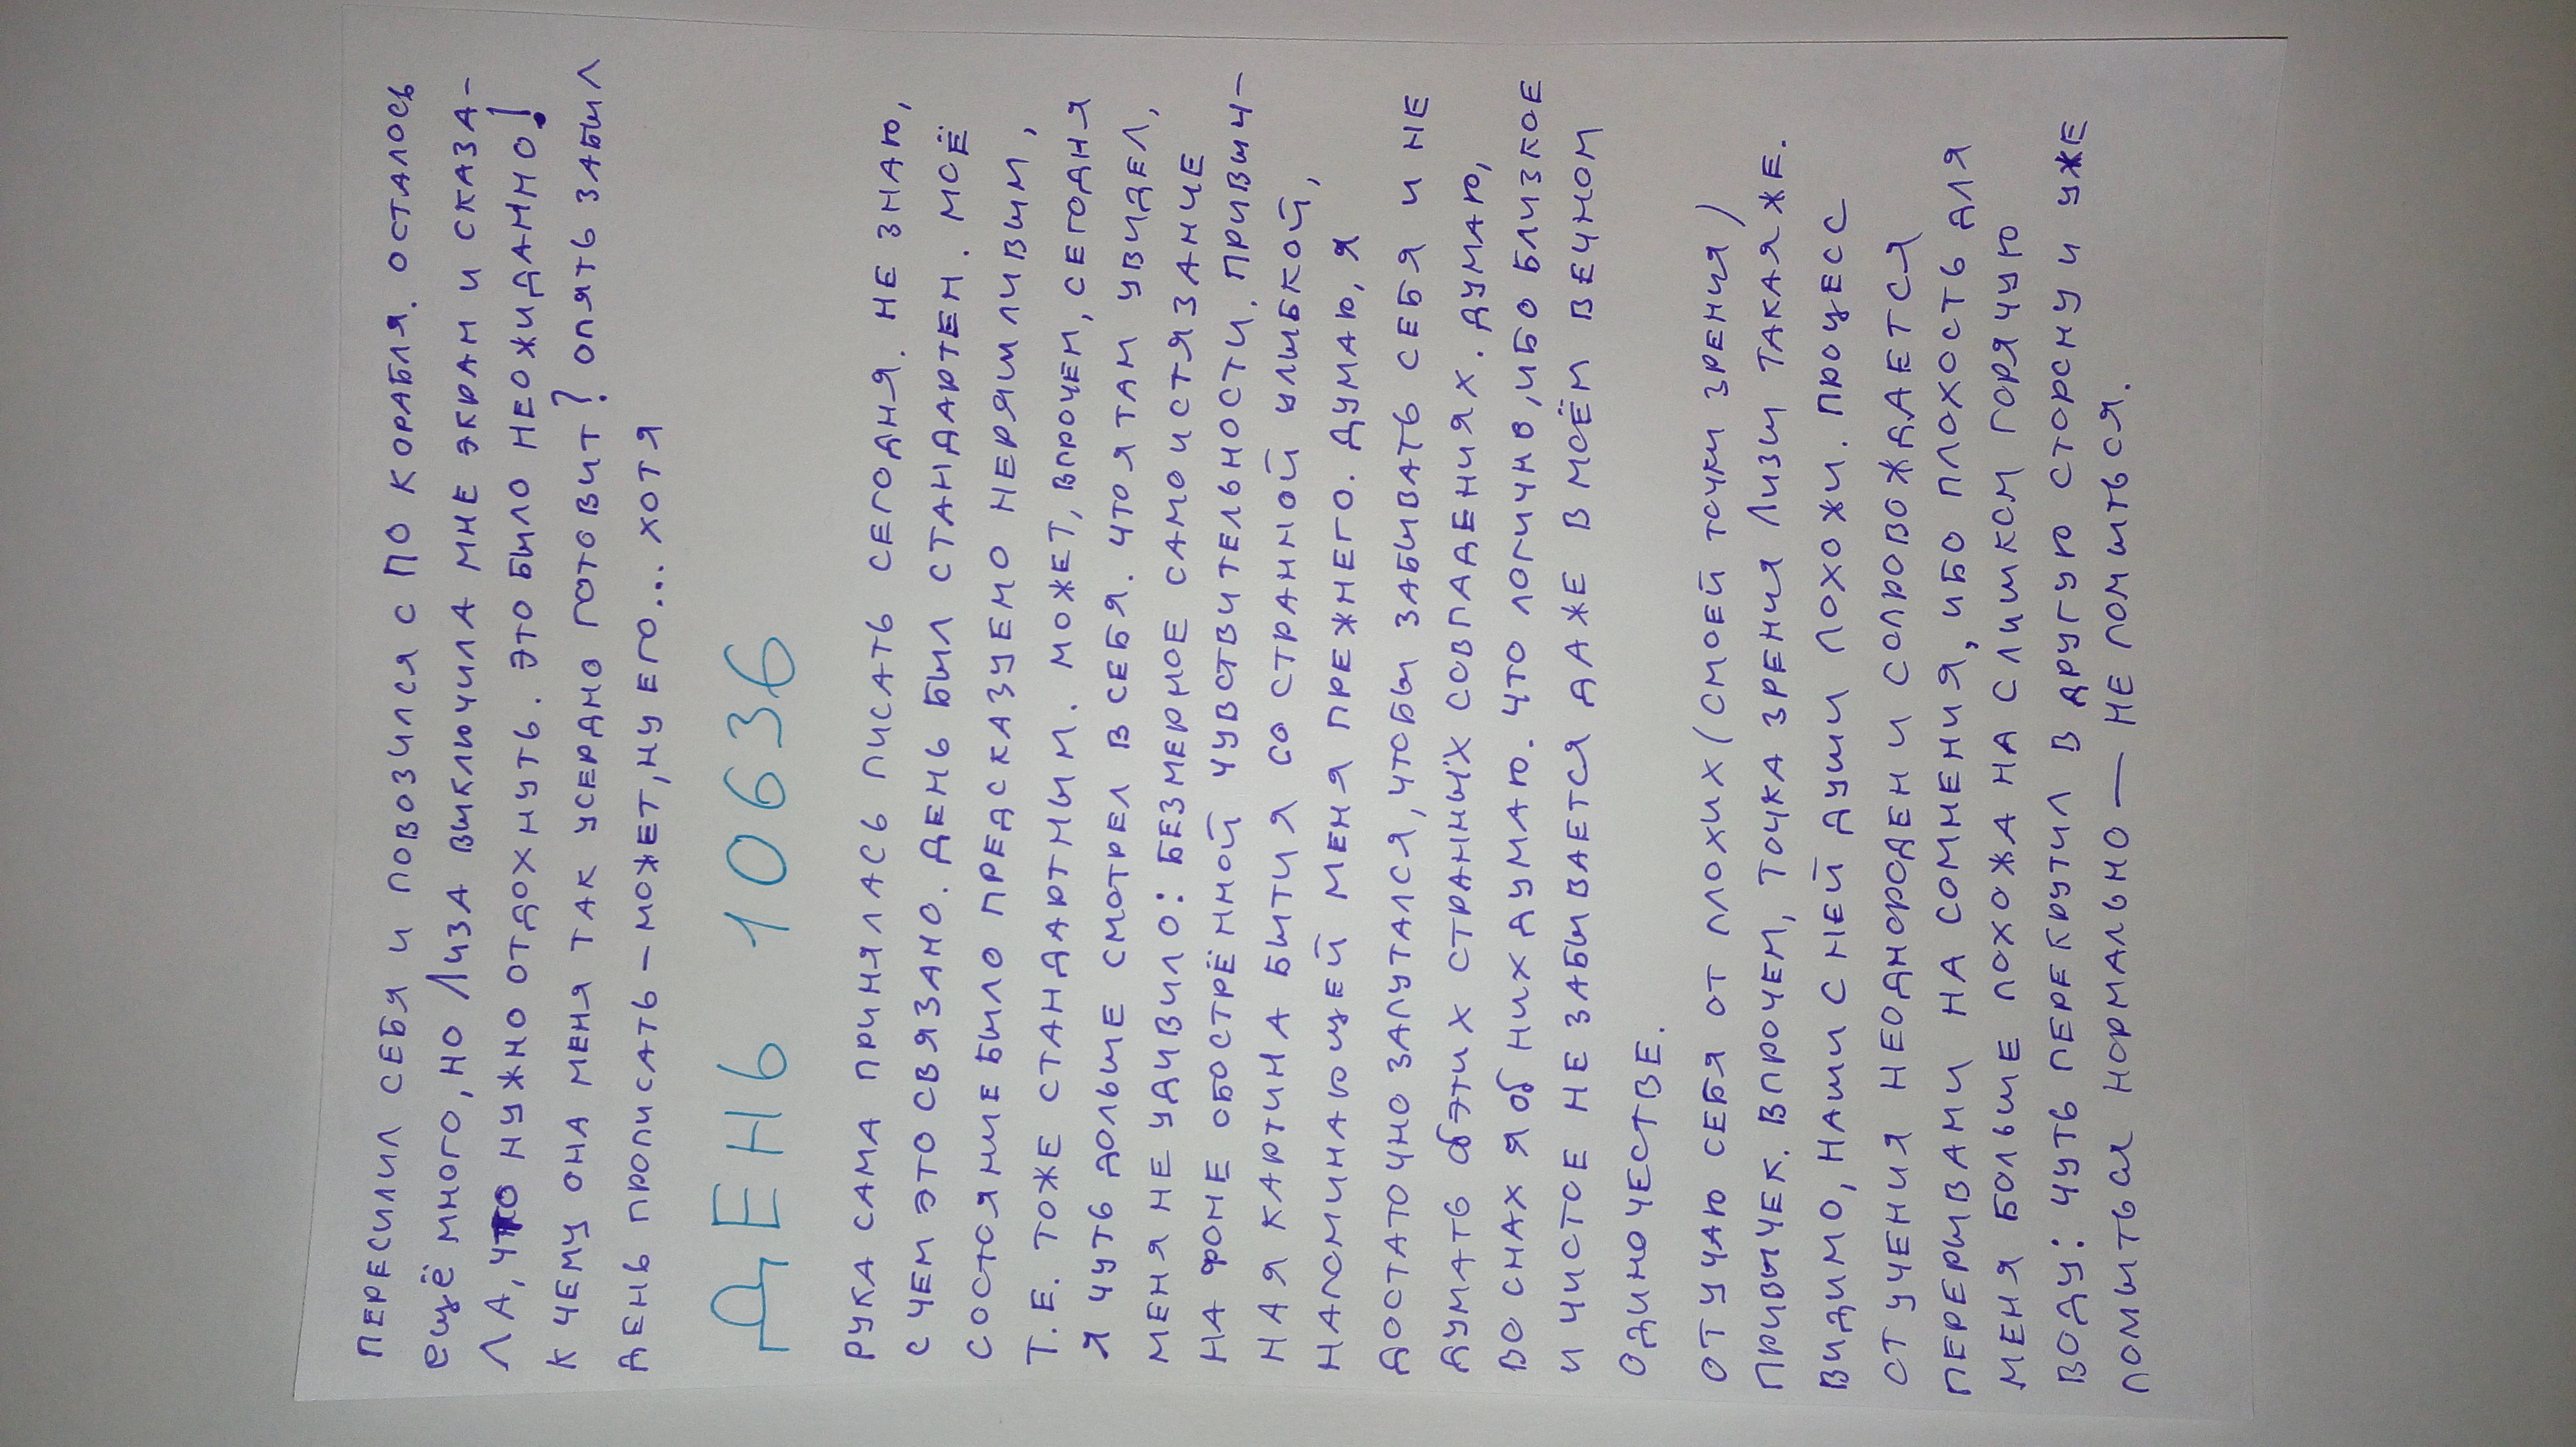 ПЕРЕСИЛИЛ СЕБЯ И ПОВОЗИЛСЯ С ПО КОРАБЛЯ. ОСТАЛОСЬ
ЕЩЁ МНОГО, НО ЛИЗА ВЫКЛЮЧИЛА МНЕ ЭКРАН И СКАЗА-
ЛА, ЧТО НУЖНО ОТДОХНУТЬ. ЭТО БЫЛО НЕОЖИДАННО!
К ЧЕМУ ОНА МЕНЯ ТАК УСЕРДНО ГОТОВИТ? ОПЯТЬ ЗАБЫЛ
ДЕНЬ ПРОПИСАТЬ — МОЖЕТ, НУ ЕГО... ХОТЯ
ДЕНЬ 10636
РУКА САМА ПРИНЯЛАСЬ ПИСАТЬ СЕГОДНЯ. НЕ ЗНАЮ,
С ЧЕМ ЭТО СВЯЗАНО. ДЕНЬ БЫЛ СТАНДАРТЕН. МОЁ
СОСТОЯНИЕ БЫЛО ПРЕДСКАЗУЕМО НЕРЯШЛИВЫМ,
Т.Е. ТОЖЕ СТАНДАРТНЫМ. МОЖЕТ, ВПРОЧЕМ, СЕГОДНЯ
Я ЧУТЬ ДОЛЬШЕ СМОТРЕЛ В СЕБЯ. ЧТО Я ТАМ УВИДЕЛ,
МЕНЯ НЕ УДИВИЛО: БЕЗМЕРНОЕ САМОИСТЯЗАНИЕ
НА ФОНЕ ОБОСТРЁННОЙ ЧУВСТВИТЕЛЬНОСТИ. ПРИВЫЧ-
НАЯ КАРТИНА БЫТИЯ СО СТРАННОЙ УЛЫБКОЙ,
НАПОМИНАЮЩЕЙ МЕНЯ ПРЕЖНЕГО. ДУМАЮ, Я
ДОСТАТОЧНО ЗАПУТАЛСЯ, ЧТОБЫ ЗАБЫВАТЬ СЕБЯ И НЕ
ДУМАТЬ ОБ ЭТИХ СТРАННЫХ СОВПАДЕНИЯХ. ДУМАЮ,
ВО СНАХ Я ОБ НИХ ДУМАЮ. ЧТО ЛОГИЧНО, ИБО БЛИЗКОЕ
И ЧИСТОЕ НЕ ЗАБЫВАЕТСЯ ДАЖЕ В МОЁМ ВЕЧНОМ
ОДИНОЧЕСТВЕ.
ОТУЧАЮ СЕБЯ ОТ ПЛОХИХ (С МОЕЙ ТОЧКИ ЗРЕНИЯ)
ПРИВЫЧЕК. ВПРОЧЕМ, ТОЧКА ЗРЕНИЯ ЛИЗЫ ТАКАЯ ЖЕ.
ВИДИМО, НАШИ С НЕЙ ДУШИ ПОХОЖИ. ПРОЦЕСС
ОТУЧЕНИЯ НЕОДНОРОДЕН И СОПРОВОЖДАЕТСЯ
ПЕРЕРЫВАМИ НА СОМНЕНИЯ, ИБО ПЛОХОСТЬ ДЛЯ
МЕНЯ БОЛЬШЕ ПОХОЖА НА СЛИШКОМ ГОРЯЧУЮ
ВОДУ: ЧУТЬ ПЕРЕКРУТИЛ В ДРУГУЮ СТОРОНУ И УЖЕ
ПОМЫТЬСЯ НОРМАЛЬНО — НЕ ПОМЫТЬСЯ.